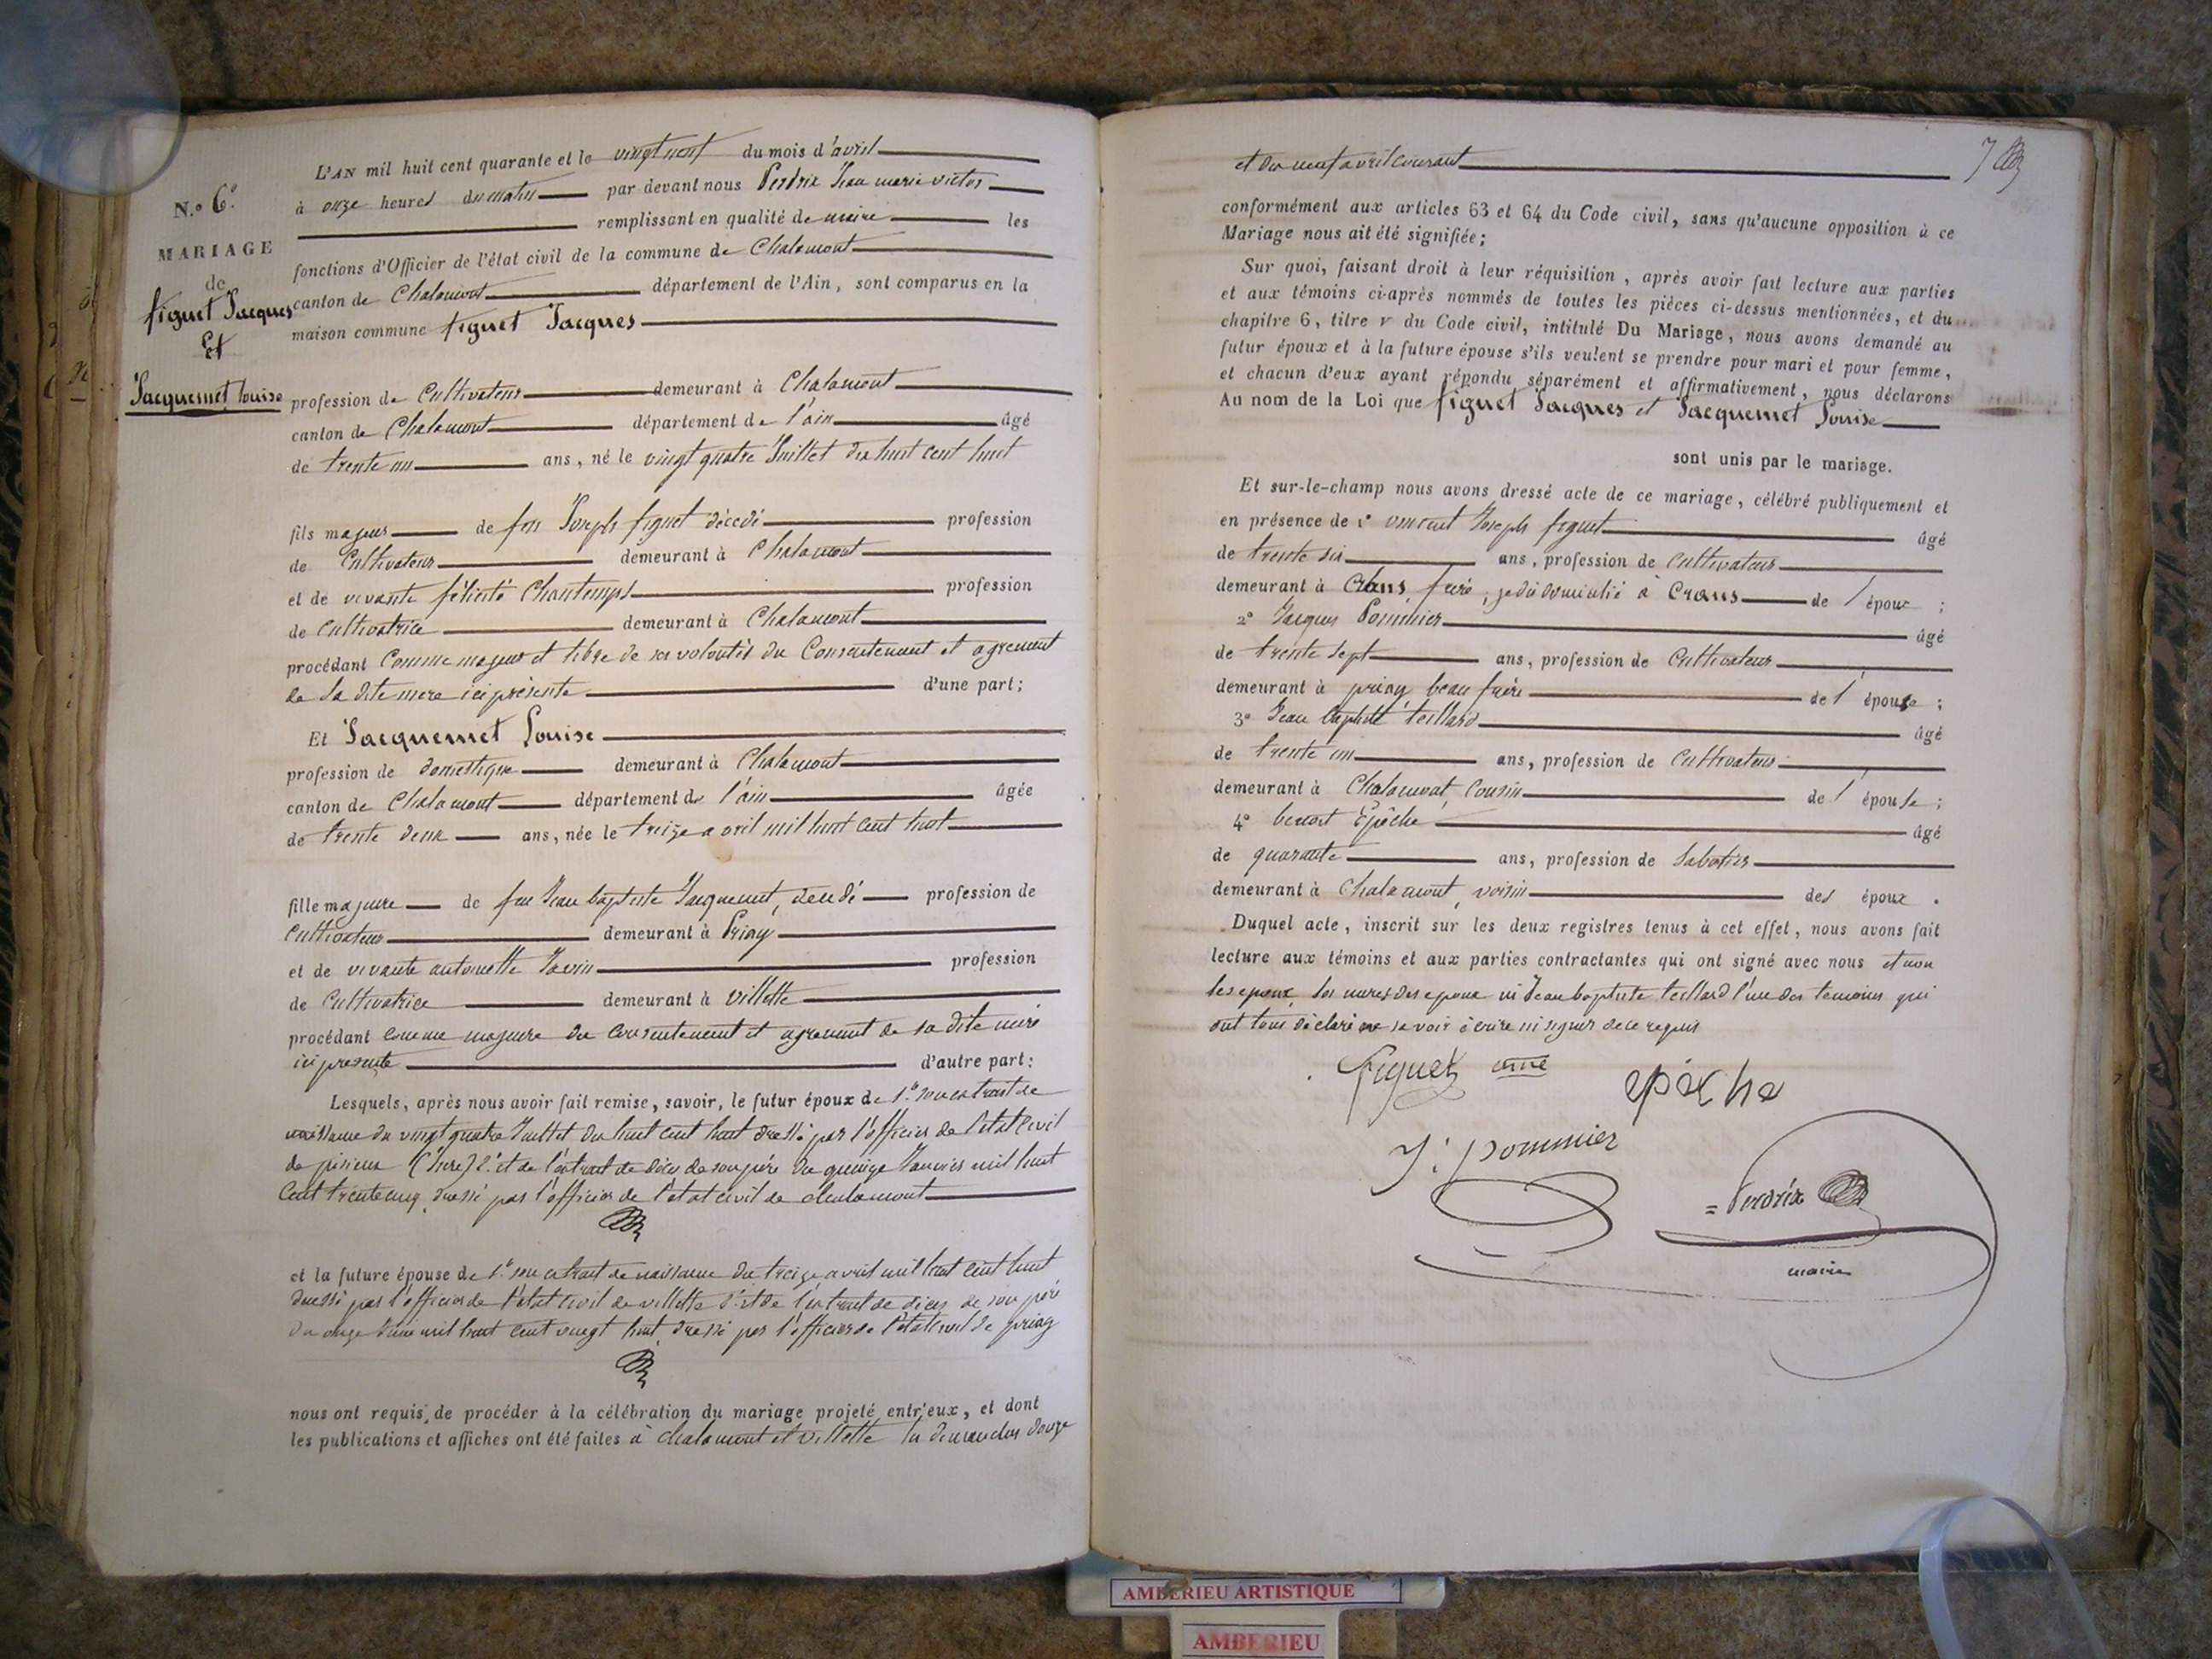 N.° 6.°
MARIAGE
de
figuet Jacques
Et
Jacquemet Louise
L'AN mil huit cent quarante et le vingt neuf du mois d'avril
à onze heures du matin par devant nous Perdrix Jean marie victor
remplissant en qualité de maire les
fonctions d'Officier de l'état civil de la commune de Chalamont
canton de Chalamont département de l'Ain, sont comparus en la
maison commune figuet Jacques
profession de Cultivateur demeurant à Chalamont
canton de Chalamont département de l'ain âgé
de trente un ans, né le vingt quatre Juillet dix huit cent huit
fils majeur de feu Joseph figuet décédé profession
de Cultivateur demeurant à Chalamont
et de vivante félicité Chantemps profession
de Cultivatrice demeurant à Chalamont
procédant Comme majeur et libre de ses volontés du Consentement et agrement
de sa dite mere ici présente d'une part;
Et Jacquemet Louise
profession de domestique demeurant à Chalamont
canton de Chalamont département de l'ain âgée
de trente deux ans, née le treize avril mil huit cent huit
fille majeure de feu Jean baptiste Jacquemet, décédé profession de
Cultivateur demeurant à Priay
et de vivante antoinette profession
de Cultivatrice demeurant à villette
procédant comme majeure du consentement et agrement de sa dite mère
ici presente d'autre part:
Lesquels, après nous avoir fait remise, savoir, le futur époux de 1.° son extrait de
naissance du vingt quatre Juillet dix huit cent huit dressé par l'officier de l'état civil
de pisieux (Isere) 2.° et de l'extrait de décès de son père du quinze Janvier mil huit
Cent trente cinq, dressé par l'officier de l'état civil de chalamont
et la future épouse de 1.° son extrait de naissance du treize avril mil huit cent huit
dressé par l'officier de l'état civil de villette 2.° et de l'extrait de décès de son père
du onze mil huit cent vingt huit, dressé par l'officier de l'état civil de priay
nous ont requis de procéder à la célébration du mariage projeté entr'eux, et dont
les publications et affiches ont été faites à chalamont et villette les dimanches douze
7
et dix neuf avril courant
conformément aux articles 63 et 64 du Code civil, sans qu'aucune opposition à ce
Mariage nous ait été signifiée;
Sur quoi, faisant droit à leur réquisition, après avoir fait lecture aux parties
et aux témoins ci-après nommés de toutes les pièces ci-dessus mentionnées, et du
chapitre 6, titre v du Code civil, intitulé Du Mariage, nous avons demandé au
futur époux et à la future épouse s'ils veulent se prendre pour mari et pour femme,
et chacun d'eux ayant répondu séparément et affirmativement, nous déclarons
Au nom de la Loi que figuet Jacques et Jacquemet Louise
sont unis par le mariage.
Et sur-le-champ nous avons dressé acte de ce mariage, célébré publiquement et
en présence de 1° vincent Joseph figuet âgé
de trente six ans, profession de Cultivateur
demeurant à Crans, frère, je dis domicilié à Crans de l'époux;
2° Jacques Pommier âgé
de trente sept ans, profession de Cultivateur
demeurant à priay beau frère de l'épouse;
3° Jean baptiste teillard âgé
de trente un ans, profession de Cultivateur
demeurant à Chalamont, Cousin de l'épouse;
4° benoit Epêche âgé
de quarante ans, profession de Sabotier
demeurant à Chalamont, voisin des époux.
Duquel acte, inscrit sur les deux registres tenus à cet effet, nous avons fait
lecture aux témoins et aux parties contractantes qui ont signé avec nous et non
les epoux, les meres des epoux ni Jean baptiste teillard l'un des temoins qui
ont tous déclaré ne savoir écrire ni signer de ce requis
figuet ainé
epeche
J: pommier
= Perdrix
maire
AMBERIEU ARTISTIQUE
AMBERIEU